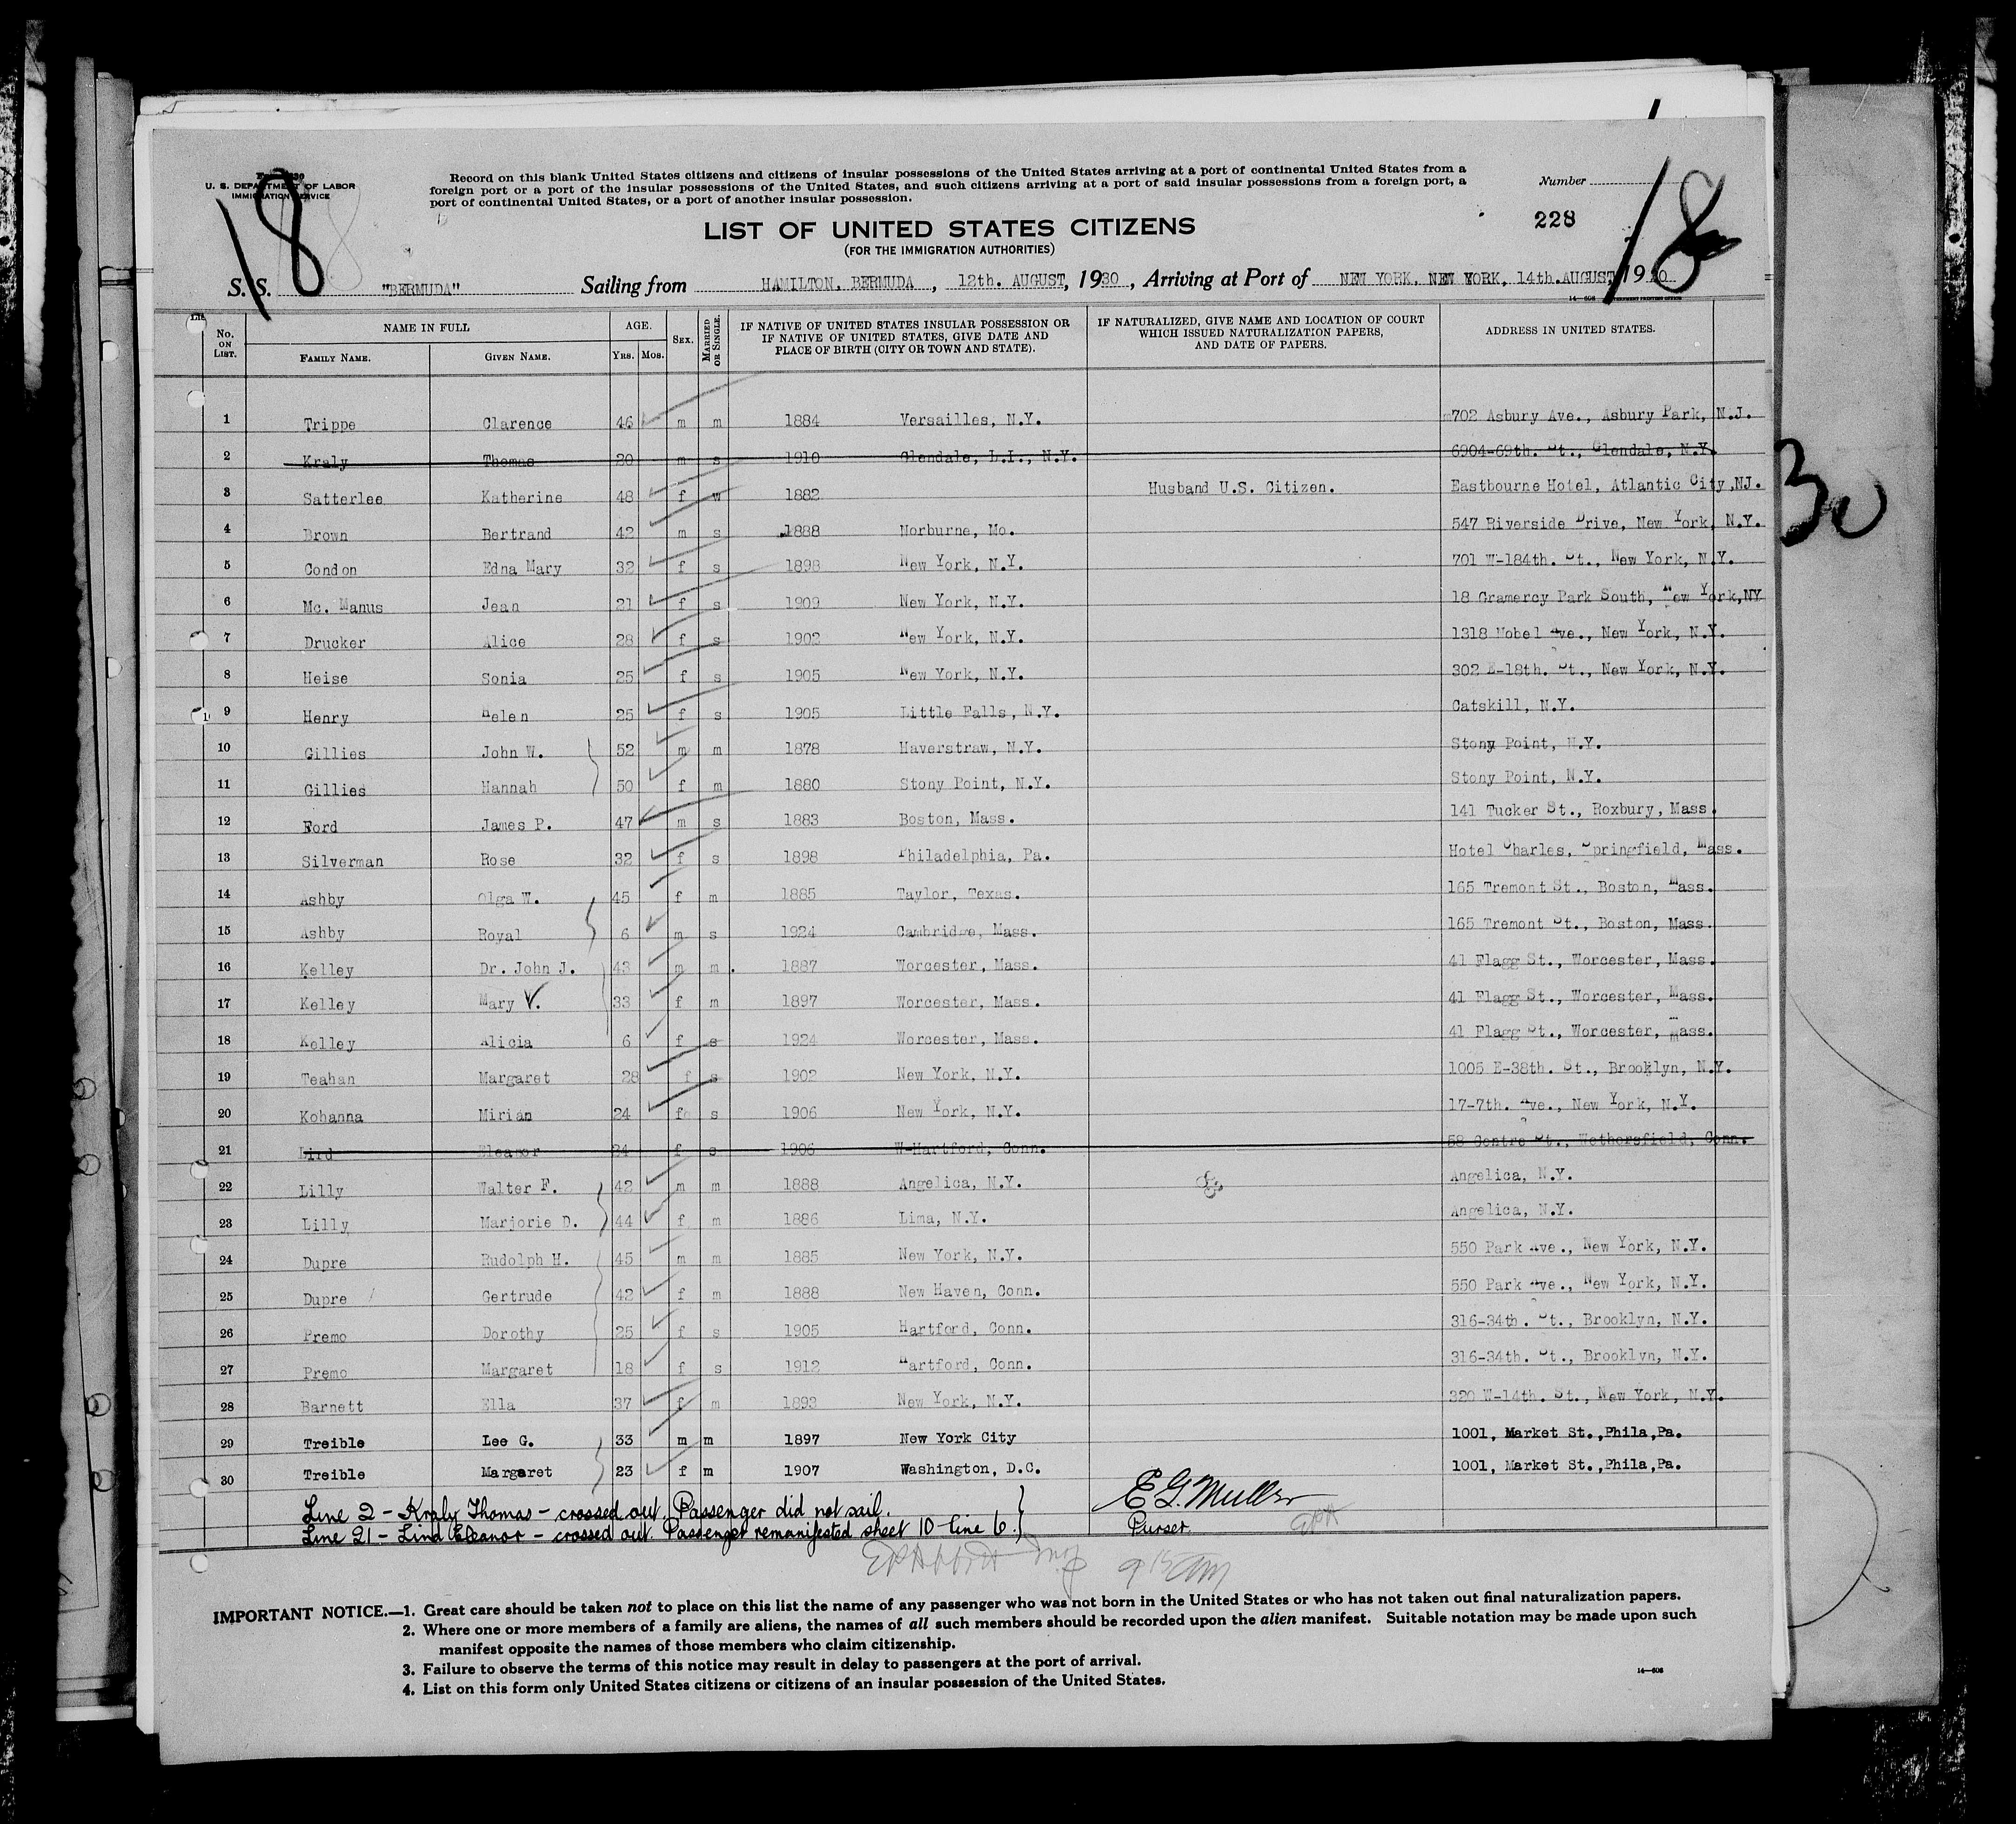 18
U. S. DEPARTMENT OF LABOR
IMMIGRATION SERVICE
Record on this blank United States citizens and citizens of insular possessions of the United States arriving at a port of continental United States from a
foreign port or a port of the insular possessions of the United States, and such citizens arriving at a port of said insular possessions from a foreign port, a
port of continental United States, or a port of another insular possession.
Number
228
18
LIST OF UNITED STATES CITIZENS
(FOR THE IMMIGRATION AUTHORITIES)
S. S. "BERMUDA" Sailing from HAMILTON, BERMUDA, 12th. AUGUST, 1930, Arriving at Port of NEW YORK, NEW YORK, 14th. AUGUST, 1930
No. ON LIST. NAME IN FULL FAMILY NAME. GIVEN NAME. AGE. YRS. MOS. SEX. MARRIED OR SINGLE. IF NATIVE OF UNITED STATES INSULAR POSSESSION OR IF NATIVE OF UNITED STATES, GIVE DATE AND PLACE OF BIRTH (CITY OR TOWN AND STATE). IF NATURALIZED, GIVE NAME AND LOCATION OF COURT WHICH ISSUED NATURALIZATION PAPERS, AND DATE OF PAPERS. ADDRESS IN UNITED STATES.
1 Trippe Clarence 46 m m 1884 Versailles, N.Y. 702 Asbury Ave., Asbury Park, N.J.
2 Kraly Thomas 20 m s 1910 Glendale, L.I., N.Y. 6904-69th. St., Glendale, N.Y.
3 Satterlee Katherine 48 f w 1882 Husband U.S. Citizen. Eastbourne Hotel, Atlantic City,NJ.
4 Brown Bertrand 42 m s 1888 Norburne, Mo. 547 Riverside Drive, New York, N.Y.
5 Condon Edna Mary 32 f s 1898 New York, N.Y. 701 W-184th. St., New York, N.Y.
6 Mc. Manus Jean 21 f s 1909 New York, N.Y. 18 Gramercy Park South, New York,NY
7 Drucker Alice 28 f s 1902 New York, N.Y. 1318 Nobel Ave., New York, N.Y.
8 Heise Sonia 25 f s 1905 New York, N.Y. 302 E-18th. St., New York, N.Y.
9 Henry Helen 25 f s 1905 Little Falls, N.Y. Catskill, N.Y.
10 Gillies John W. 52 m m 1878 Haverstraw, N.Y. Stony Point, N.Y.
11 Gillies Hannah 50 f m 1880 Stony Point, N.Y. Stony Point, N.Y.
12 Ford James P. 47 m s 1883 Boston, Mass. 141 Tucker St., Roxbury, Mass.
13 Silverman Rose 32 f s 1898 Philadelphia, Pa. Hotel Charles, Springfield, Mass.
14 Ashby Olga W. 45 f m 1885 Taylor, Texas. 165 Tremont St., Boston, Mass.
15 Ashby Royal 6 m s 1924 Cambridge, Mass. 165 Tremont St., Boston, Mass.
16 Kelley Dr. John J. 43 m m. 1887 Worcester, Mass. 41 Flagg St., Worcester, Mass.
17 Kelley Mary V. 33 f m 1897 Worcester, Mass. 41 Flagg St., Worcester, Mass.
18 Kelley Alicia 6 f s 1924 Worcester, Mass. 41 Flagg St., Worcester, Mass.
19 Teahan Margaret 28 f s 1902 New York, N.Y. 1005 E-38th. St., Brooklyn, N.Y.
20 Kohanna Mirian 24 f s 1906 New York, N.Y. 17-7th. Ave., New York, N.Y.
21 Lind Eleanor 24 f s 1906 W-Hartford, Conn. 58 Centre St., Wethersfield, Conn.
22 Lilly Walter F. 42 m m 1888 Angelica, N.Y. Angelica, N.Y.
23 Lilly Marjorie D. 44 f m 1886 Lima, N.Y. Angelica, N.Y.
24 Dupre Rudolph H. 45 m m 1885 New York, N.Y. 550 Park Ave., New York, N.Y.
25 Dupre Gertrude 42 f m 1888 New Haven, Conn. 550 Park Ave., New York, N.Y.
26 Premo Dorothy 25 f s 1905 Hartford, Conn. 316-34th. St., Brooklyn, N.Y.
27 Premo Margaret 18 f s 1912 Hartford, Conn. 316-34th. St., Brooklyn, N.Y.
28 Barnett Ella 37 f m 1893 New York, N.Y. 320 W-14th. St., New York, N.Y.
29 Treible Lee G. 33 m m 1897 New York City 1001, Market St.,Phila,Pa.
30 Treible Margaret 23 f m 1907 Washington, D.C. 1001, Market St.,Phila,Pa.
Line 2 - Kraly Thomas - crossed out. Passenger did not sail.
Line 21 - Lind Eleanor - crossed out. Passenger remanifested sheet 10 - line 6.
E G. Muller
Purser.
9 15 AM
IMPORTANT NOTICE.—1. Great care should be taken not to place on this list the name of any passenger who was not born in the United States or who has not taken out final naturalization papers.
2. Where one or more members of a family are aliens, the names of all such members should be recorded upon the alien manifest. Suitable notation may be made upon such
manifest opposite the names of those members who claim citizenship.
3. Failure to observe the terms of this notice may result in delay to passengers at the port of arrival.
4. List on this form only United States citizens or citizens of an insular possession of the United States.
14—608
30